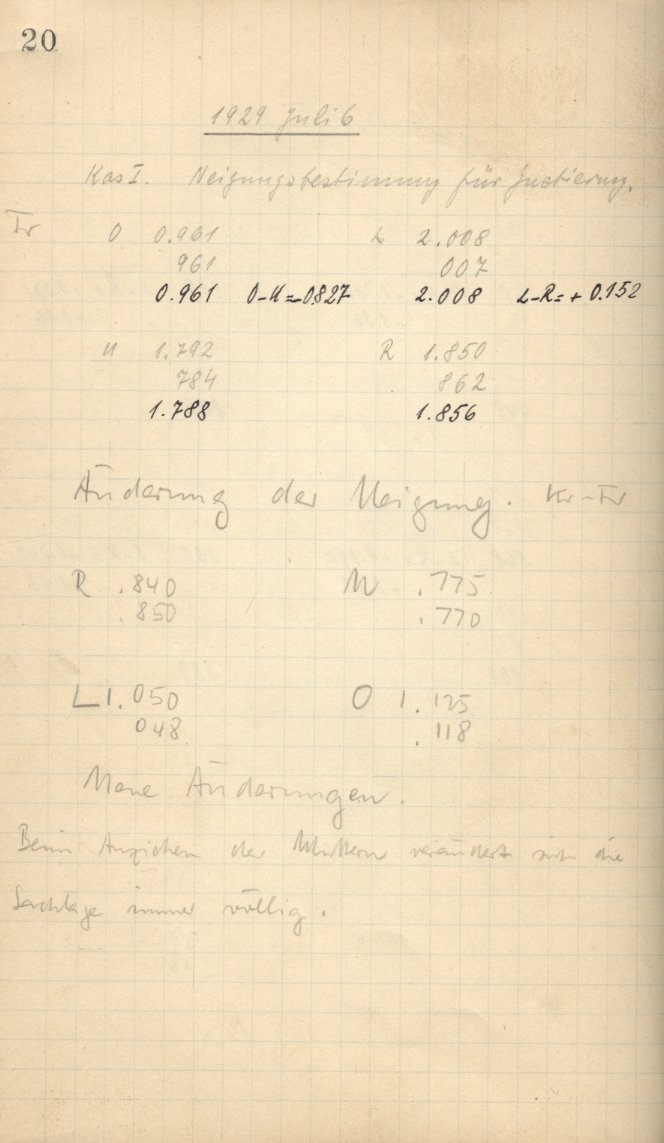 20
1929 Juli 6
Kas I. Neigungsbestimmung für Justierung.
Fr O 0.961 L 2.008
961 007
0.961 O-U=-0827 2.008 L-R=+0.152
U 1.792 R 1.850
784 862
1.788 1.856
Änderung der Neigung. Kr-Fr
R .840 U .775
.850 .770
L 1.050 O 1.125
048 .118
Neue Änderungen.
Beim Anziehen der Muttern verändert sich die
Sachlage immer völlig.